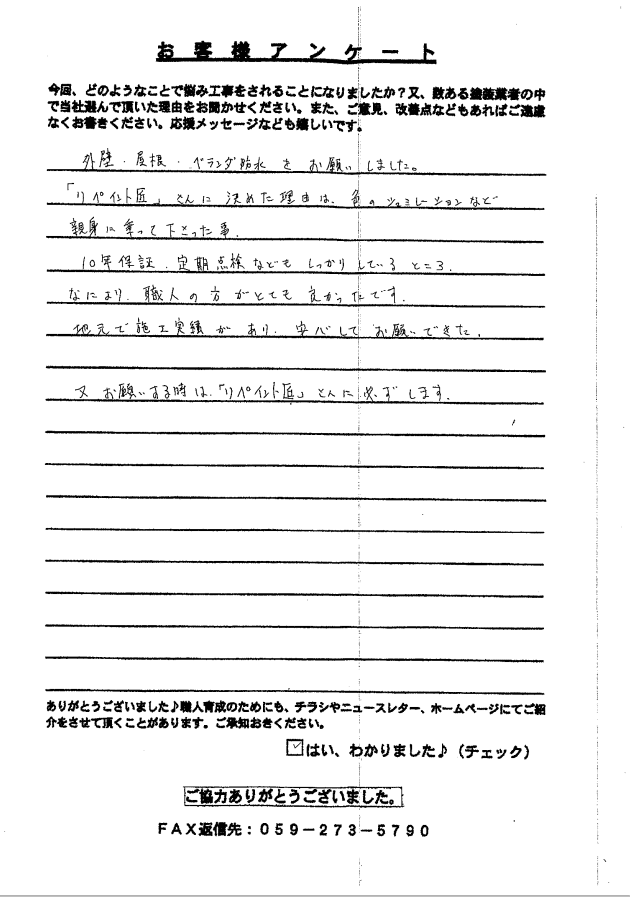 お客様アンケート
今回、どのようなことで悩み工事をされることになりましたか？又、数ある塗装業者の中
で当社選んで頂いた理由をお聞かせください。また、ご意見、改善点などもあればご遠慮
なくお書きください。応援メッセージなども嬉しいです。
外壁・屋根・ベランダ防水をお願いしました。
「リペイント匠」さんに決めた理由は、色のシュミレーションなど
親身に乗って下さった事。
10年保証、定期点検などもしっかりしているところ。
なにより、職人の方がとても良かったです。
地元で施工実績があり、安心してお願いできた。
又お願いする時は、「リペイント匠」さんに必ずします。
ありがとうございました♪職人育成のためにも、チラシやニュースレター、ホームページにてご紹
介をさせて頂くことがあります。ご承知おきください。
☑はい、わかりました♪（チェック）
ご協力ありがとうございました。
ＦＡＸ返信先：０５９－２７３－５７９０